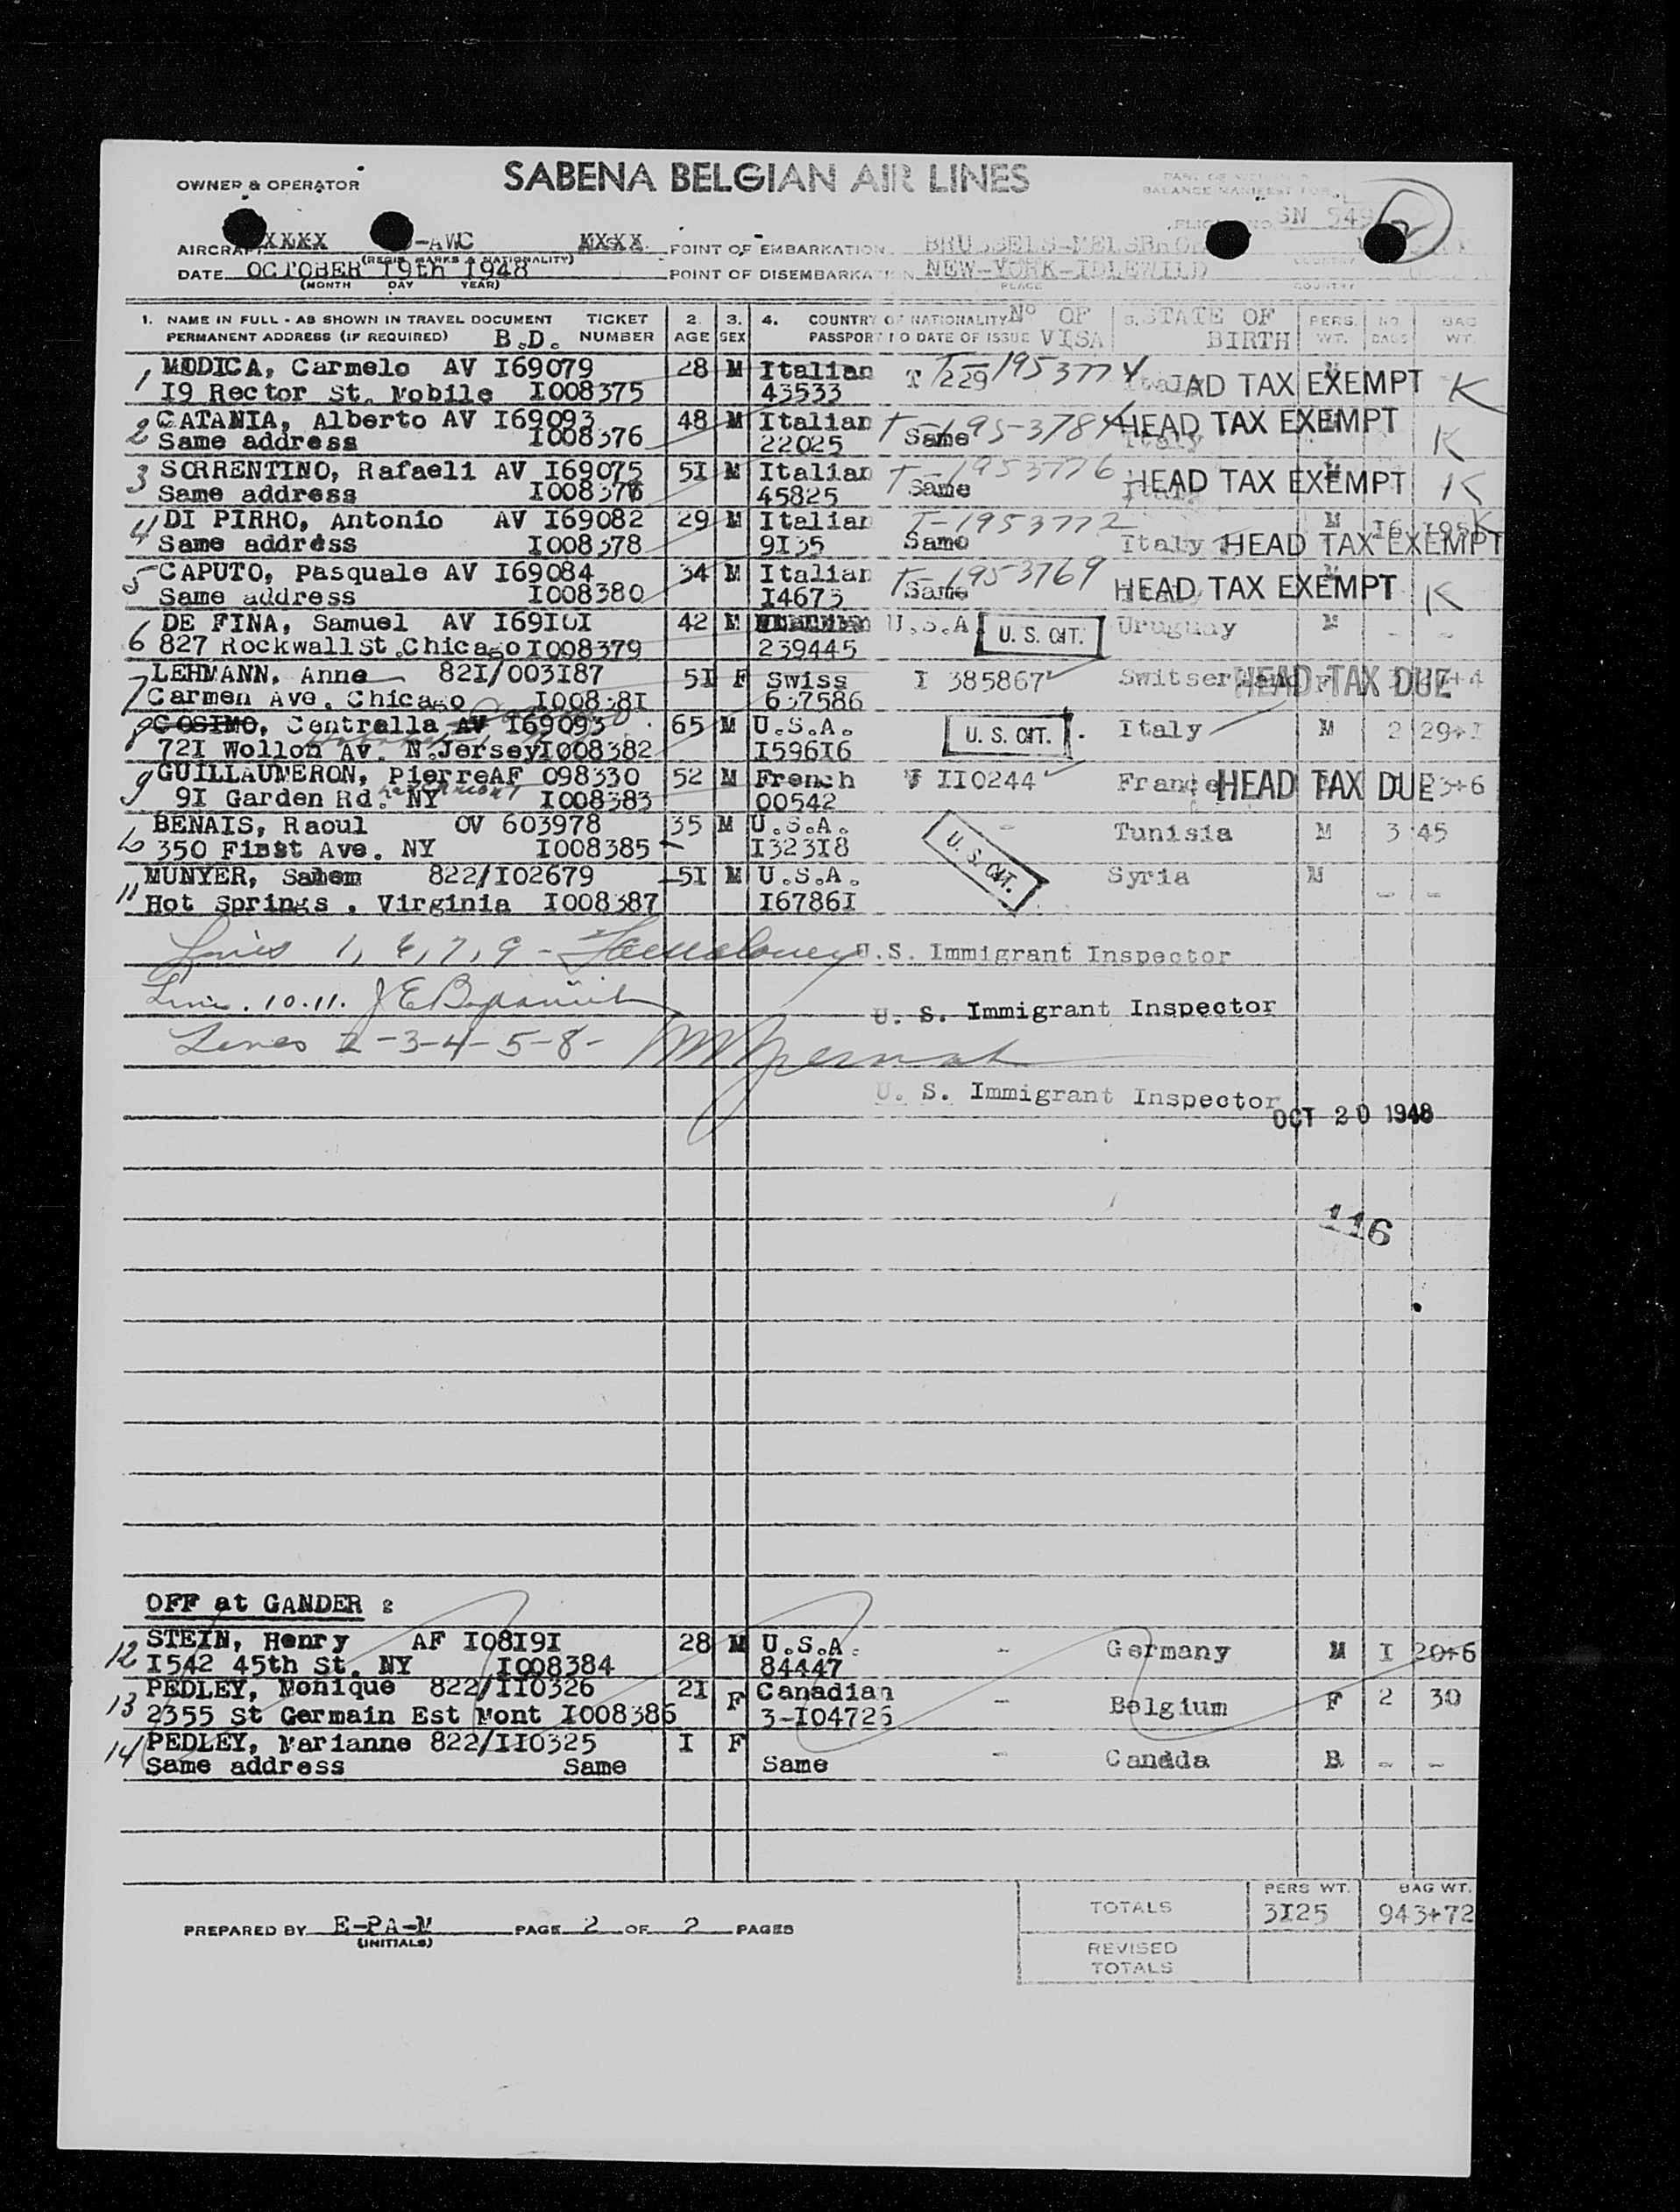 SABENA BELGIAN AIR LINES
OWNER & OPERATOR
BALANCE MANIFEST FOR
SN 549 2
AIRCRAFT XXXX -AWC XXXX POINT OF EMBARKATION BRUSSELS-MELSBROE
(REGIS MARKS & NATIONALITY)
DATE OCTOBER I9th I948 POINT OF DISEMBARKATION NEW-YORK-IDLEWILD
(MONTH DAY YEAR) PLACE COUNTRY
1. NAME IN FULL - AS SHOWN IN TRAVEL DOCUMENT TICKET 2. 3. 4. COUNTRY OF NATIONALITY Nº OF 5. STATE OF PERS. NO BAG
PERMANENT ADDRESS (IF REQUIRED) B.D. NUMBER AGE SEX PASSPORT NO DATE OF ISSUE VISA BIRTH WT. BAGS WT.
1 MODICA, Carmelo AV I69079 28 M Italian T-1953774 Italy M
I9 Rector St. Mobile I008375 43533 T 229 AD TAX EXEMPT K
2 CATANIA, Alberto AV I69093 48 M Italian T-195-3784 HEAD TAX EXEMPT
Same address I008376 22025 Same Italy K
3 SORRENTINO, Rafaeli AV I69075 5I M Italian T-1953776 HEAD TAX EXEMPT K
Same address I008377 45825 Same
4 DI PIRRO, Antonio AV I69082 29 M Italian T-1953772 M I6 I95 K
Same address I008378 9I35 Same Italy HEAD TAX EXEMPT
5 CAPUTO, Pasquale AV I69084 34 M Italian T-1953769 HEAD TAX EXEMPT K
Same address I008380 I4673 Same
DE FINA, Samuel AV I69I0I 42 M U.S.A. U. S. CIT. Uruguay M - -
6 827 Rockwall St.Chicago I008379 239445
7 LEHMANN, Anne 82I/003I87 5I F Swiss I 385867 Switserland HEAD TAX DUE
Carmen Ave. Chicago I00838I 637586
8 COSIMO, Centrella AV I69093 65 M U.S.A. U. S. CIT. Italy M 2 29+I
72I Wollon Av. N.Jersey I008382 I596I6
9 GUILLAUMERON, Pierre AF 098330 52 M French V II0244 France HEAD TAX DUE 3+6
9I Garden Rd. NY I008383 00542
10 BENAIS, Raoul OV 603978 35 M U.S.A. - U. S. CIT. Tunisia M 3 45
350 First Ave. NY I008385 I323I8
11 MUNYER, Salem 822/I02679 5I M U.S.A. Syria M - -
Hot Springs , Virginia I008387 I6786I
Lines 1, 6, 7, 9 - U.S. Immigrant Inspector
Lines. 10.11. U. S. Immigrant Inspector
Lines 2-3-4-5-8-
U. S. Immigrant Inspector
OCT 20 1948
116
OFF at GANDER :
12 STEIN, Henry AF I08I9I 28 M U.S.A. - Germany M I 20+6
I542 45th St. NY I008384 84447
13 PEDLEY, Monique 822/II0326 2I F Canadian - Belgium F 2 30
2355 St Germain Est Mont I008386 3-I04726
14 PEDLEY, Marianne 822/II0325 I F - Canada B - -
Same address Same Same
PERS WT. BAG WT.
TOTALS 3I25 943+72
PREPARED BY E-PA-M PAGE 2 OF 2 PAGES
(INITIALS)
REVISED
TOTALS